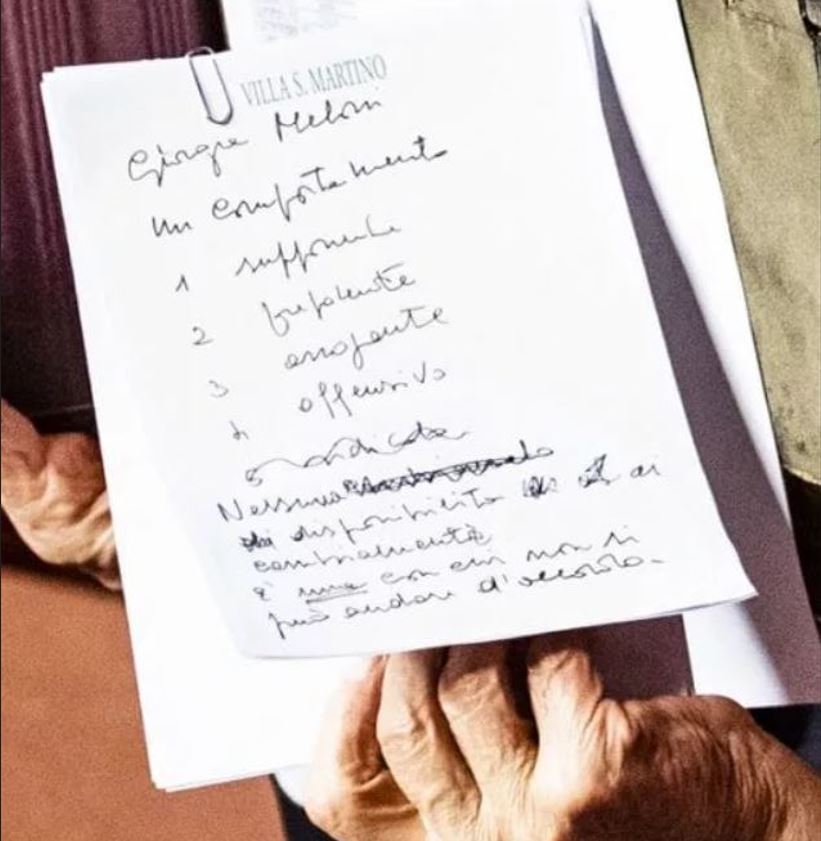 VILLA S. MARTINO
Giorgia Meloni
Un comportamento
1 supponente
2 prepotente
3 arrogante
4 offensivo
5 ridicola
Nessuna
disponibilità ai
cambiamenti
È una con cui non si
può andare d'accordo.